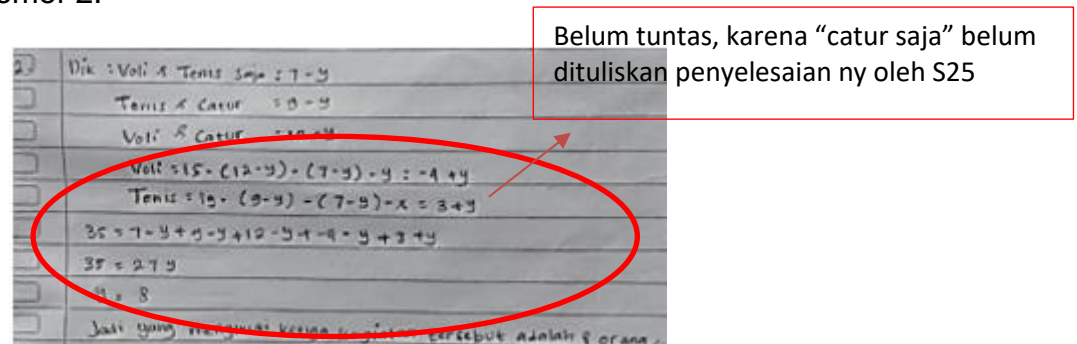 Nomor 2.
Belum tuntas, karena "catur saja" belum
dituliskan penyelesaian ny oleh S25
2) Dik : Voli & Tenis saja : 7 - y
Tenis & Catur = 9 - y
Voli & Catur = 12 - y
Voli = 15 - (12-y) - (7-y) - y = -4 + y
Tenis = 19 - (9-y) - (7-y) - x = 3 + y
35 = 7 - y + 9 - y + 12 - y + -4 - y + 3 + y
35 = 27 y
y = 8
Jadi yang mengikuti ketiga kegiatan tersebut adalah 8 orang.